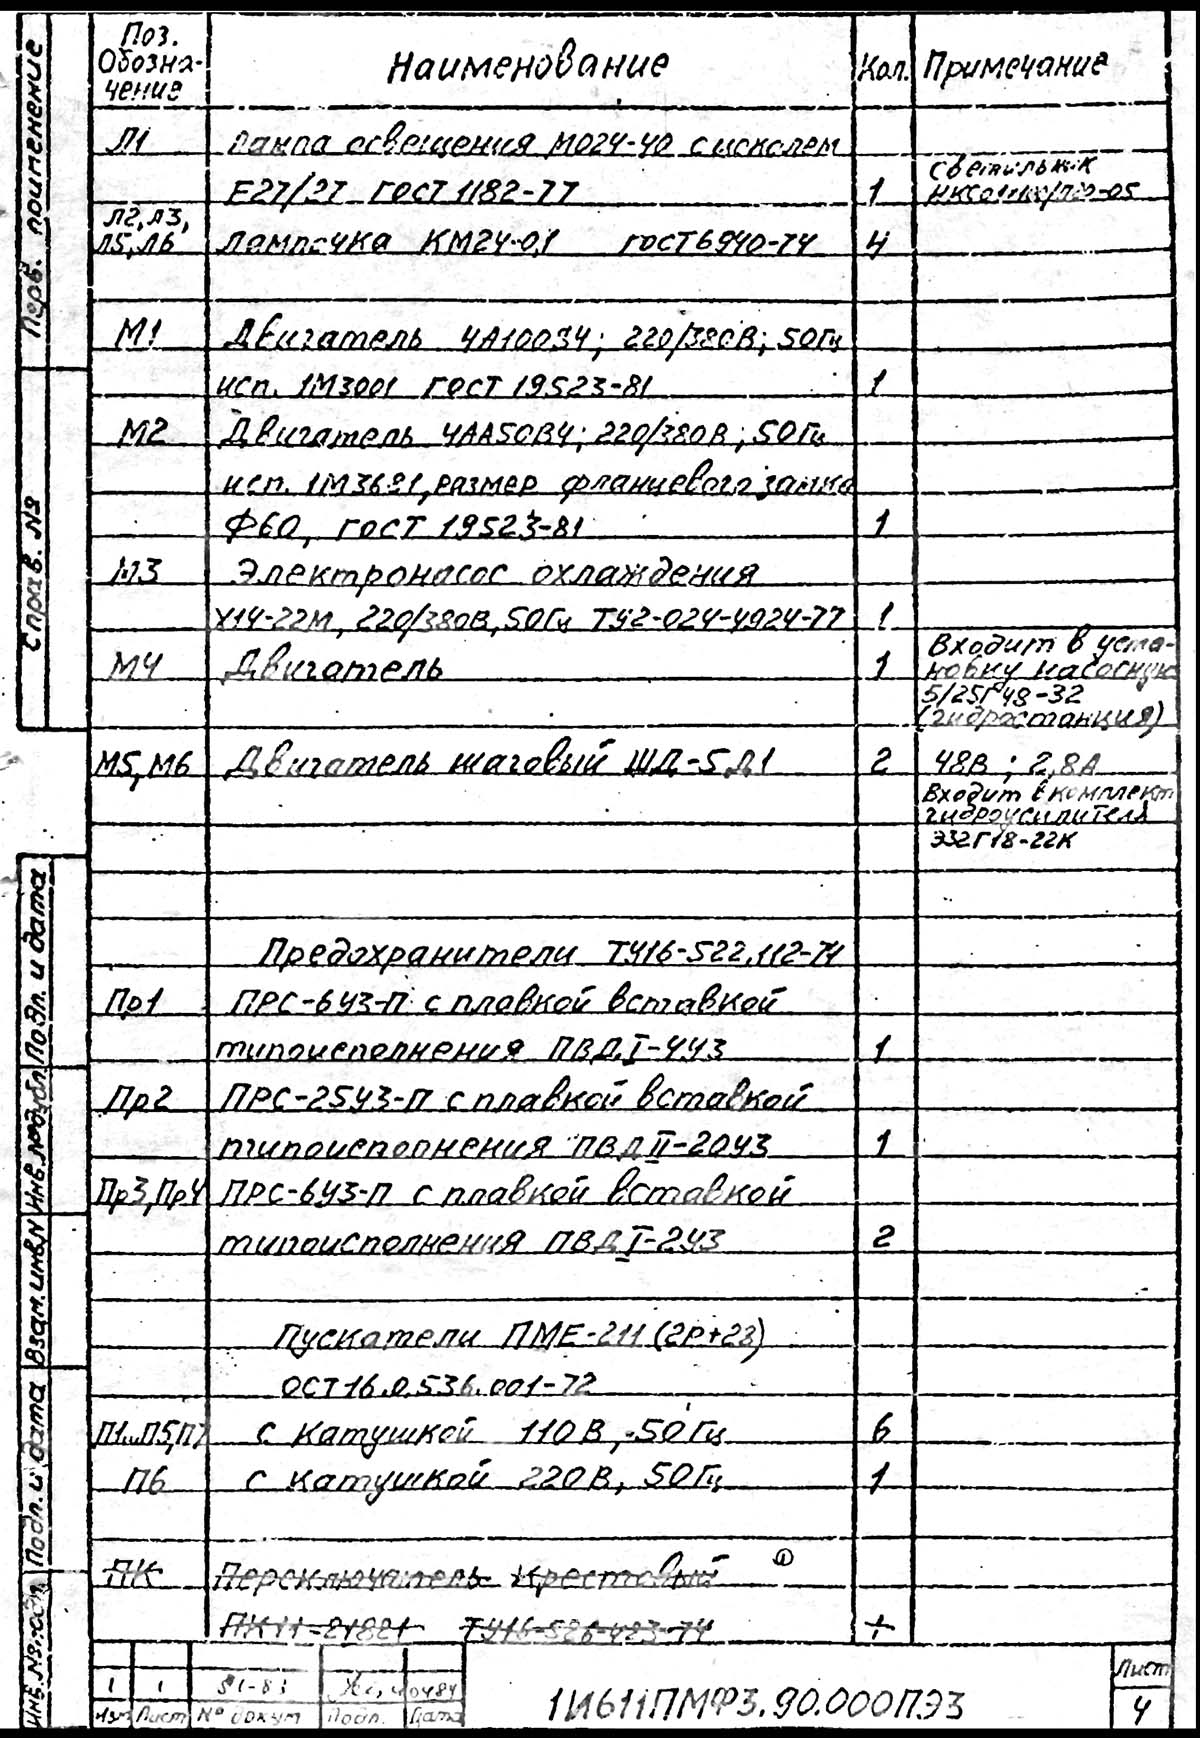 Перв. применение
Справ. №
Подп. и дата
Инв. № дубл.
Взам. инв. №
Подп. и дата
Инв. № подп.
Поз. Обозна-чение Наименование Кол. Примечание
Л1 Лампа освещения МО24-40 с цоколем
Е27/27 ГОСТ 1182-77 1 Светильник
Л2, Л3,
Л5, Л6 Лампочка КМ24-0,1 ГОСТ 6940-74 4
М1 Двигатель 4А100S4; 220/380В; 50Гц
исп. 1М3001 ГОСТ 19523-81 1
М2 Двигатель 4АА50В4; 220/380В; 50Гц
исп. 1М3681, размер фланцевого замка
Ф60, ГОСТ 19523-81 1
М3 Электронасос охлаждения
Х14-22М, 220/380В, 50Гц ТУ2-024-4924-77 1
М4 Двигатель 1 Входит в уста-
новку насосную
5/25Г48-32
(гидростанция)
М5, М6 Двигатель шаговый ШД-5Д1 2 48В; 2,8А
Входит в комплект
гидроусилителя
Э32Г18-22К
Предохранители ТУ16-522.112-74
Пр1 ПРС-6У3-П с плавкой вставкой
типоисполнения ПВД I-4У3 1
Пр2 ПРС-25У3-П с плавкой вставкой
типоисполнения ПВД II-20У3 1
Пр3, Пр4 ПРС-6У3-П с плавкой вставкой
типоисполнения ПВД I-2У3 2
Пускатели ПМЕ-211 (2р+2з)
ОСТ16.0.536.001-72
П1...П5, П7 с катушкой 110В, 50Гц 6
П6 с катушкой 220В, 50Гц 1
ПК Переключатель крестовый ①
ПК11-21821 ТУ16-526-423-74 1
1 1 51-83 0484
Изм Лист № докум Подп. Дата
1И611ПМФ3.90.000ПЭ3
Лист
4